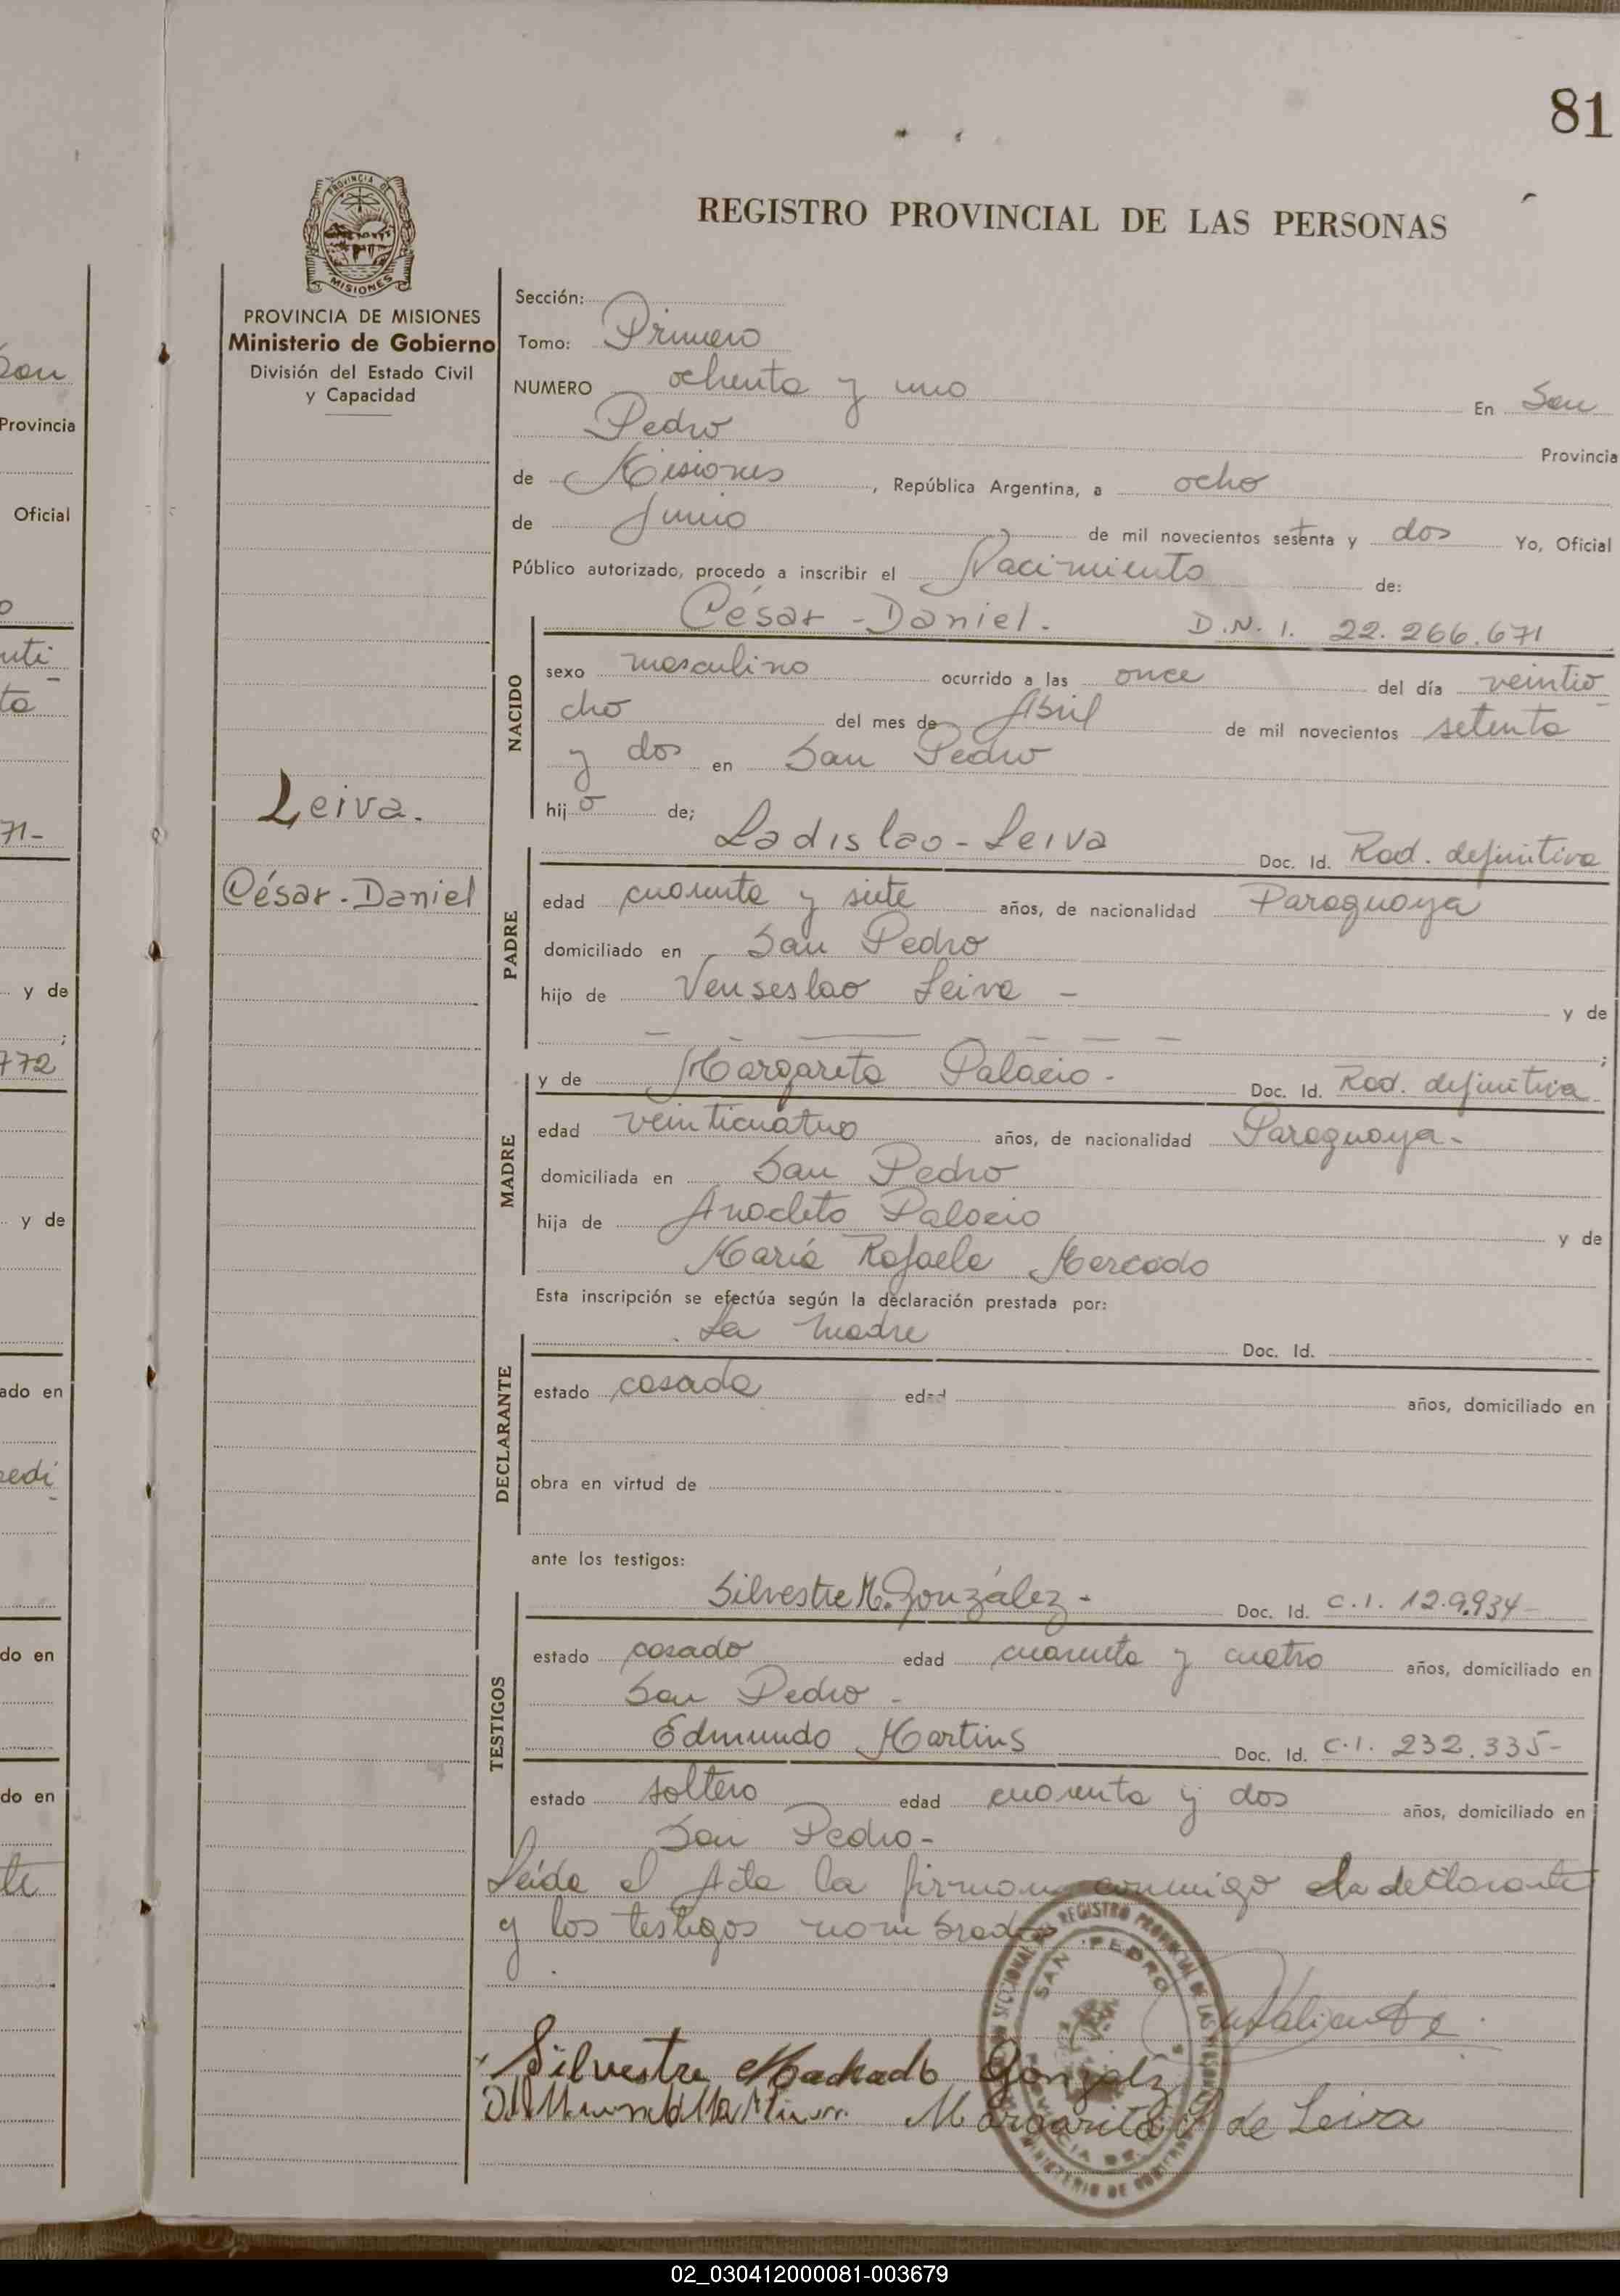 81
REGISTRO PROVINCIAL DE LAS PERSONAS
PROVINCIA DE MISIONES
PROVINCIA DE MISIONES
Ministerio de Gobierno
División del Estado Civil
y Capacidad
Leiva.
César - Daniel
Sección:
Tomo: Primero
NUMERO ochenta y uno En San
Pedro Provincia
de Misiones, República Argentina, a ocho
de Junio de mil novecientos setenta y dos Yo, Oficial
Público autorizado, procedo a inscribir el Nacimiento de:
César - Daniel. D.N.I. 22.266.671
NACIDO
sexo masculino ocurrido a las once del día veintio
cho del mes de Abril de mil novecientos setenta
y dos en San Pedro
hijo de;
Ladislao - Leiva Doc. Id. Rad. definitiva
PADRE
edad cuarenta y siete años, de nacionalidad Paraguaya
domiciliado en San Pedro
hijo de Venseslao Leiva - y de
;
y de Margarita Palacio - Doc. Id. Rad. definitiva
MADRE
edad veinticuatro años, de nacionalidad Paraguaya -
domiciliada en San Pedro
hija de Anacleto Palacio y de
María Rafaela Mercado
Esta inscripción se efectúa según la declaración prestada por:
La madre Doc. Id.
DECLARANTE
estado casada edad años, domiciliado en
obra en virtud de
ante los testigos:
Silvestre M. González - Doc. Id. C.I. 129.934 -
TESTIGOS
estado casado edad cuarenta y cuatro años, domiciliado en
San Pedro -
Edmundo Martins Doc. Id. C.I. 232.335 -
estado soltero edad cuarenta y dos años, domiciliado en
San Pedro -
Leída el Acta la firman conmigo la declarante
y los testigos nombrados
SAN PEDRO
REGISTRO PROVINCIAL DE LAS
MINISTERIO DE GOBIERNO
Silvestre Machado Gonzalez
Margarita P de Leiva
San
Provincia
Oficial
71-
y de
;
772
y de
ado en
do en
do en
02_030412000081-003679